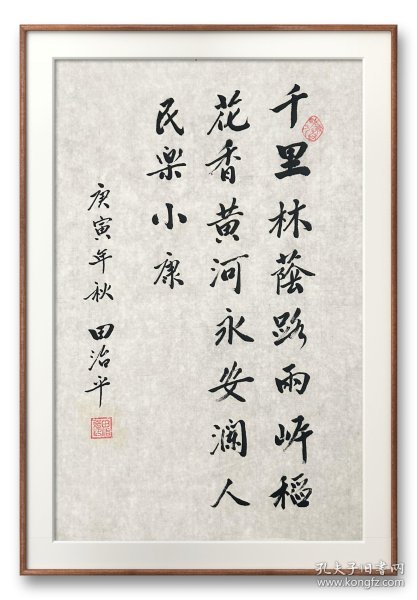 千里林蔭路兩岸稻
花香黄河永安瀾人
民樂小康
庚寅年秋 田治平
孔夫子旧书网
www.kongfz.com